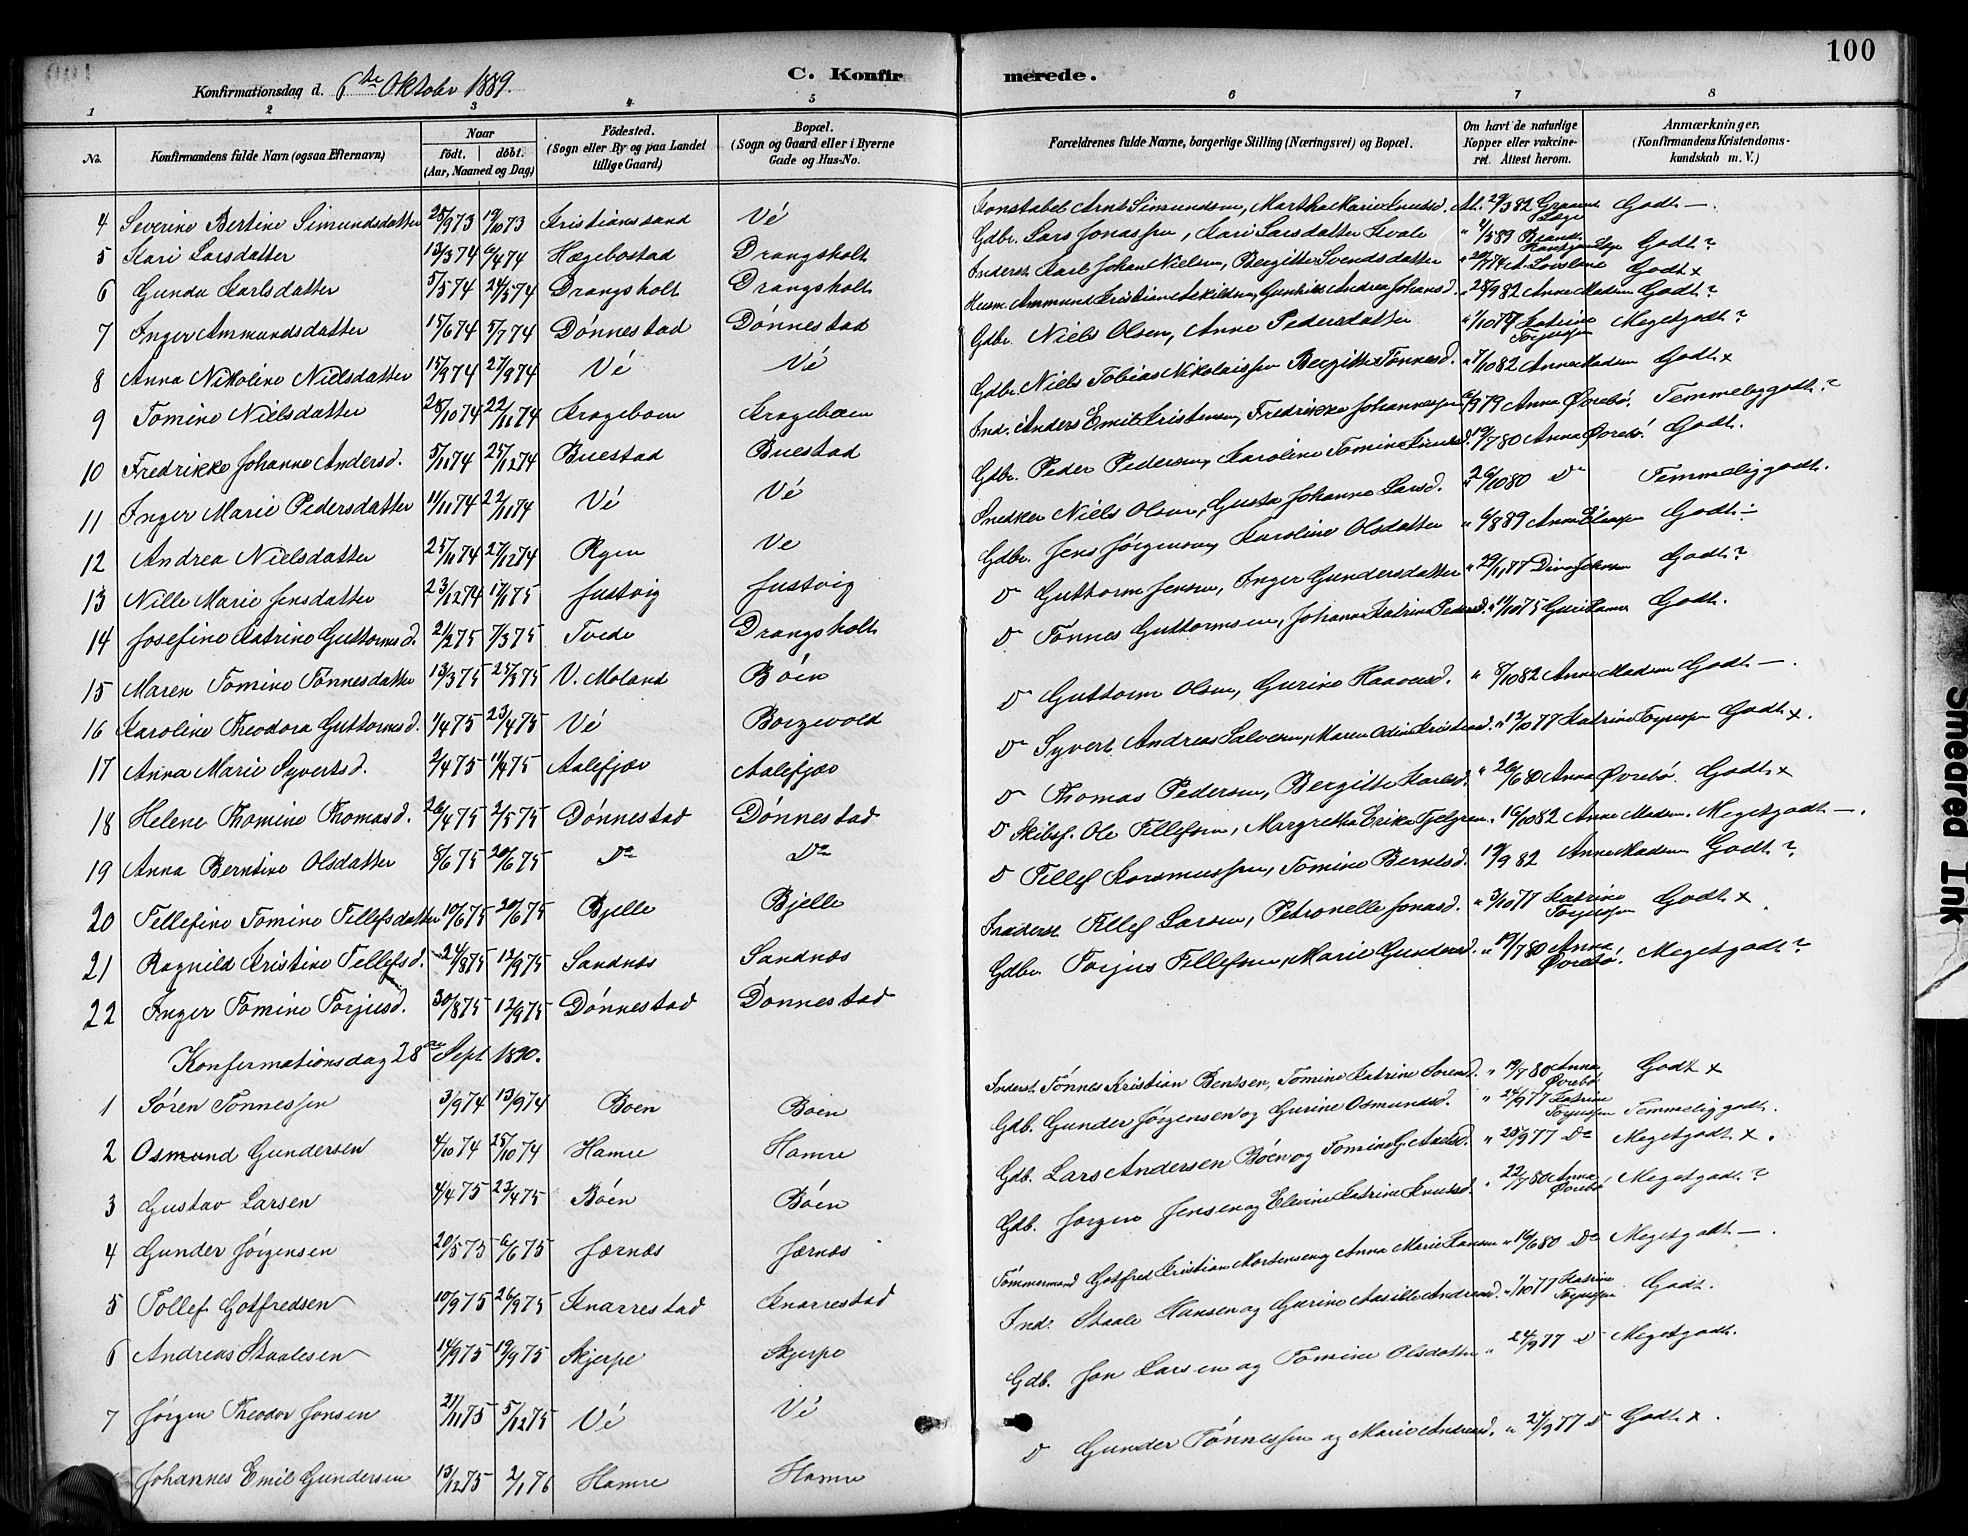 100
C. Konfirmerede.
Konfirmationsdag d. 6te Oktober 1889.
1 2 3 4 5 6 7 8
No. Konfirmandens fulde Navn (ogsaa Efternavn) Naar født, døbt. (Aar, Maaned og Dag) Fødested. (Sogn eller By og paa Landet tillige Gaard) Bopæl. (Sogn og Gaard eller i Byerne Gade og Hus-No. Forældrenes fulde Navne, borgerlige Stilling (Næringsvei) og Bopæl. Om havt de naturlige Kopper eller vakcineret. Attest herom. Anmærkninger, (Konfirmandens Kristendomskundskab m. V.)
4 Severine Bertine Simundsdatter 25/9 73 19/10 73 Kristianssand Vé Konstabel Arnt Simundsen, Martha Marie Knutsd. At. 29/3 82 Godt –.
5 Kari Larsdatter 13/3 74 6/4 74 Hægebostad Drangsholt Gdbr. Lars Jonassen, Kari Larsdatter Kvale Godt ?
6 Gunda Karlsdatter 5/5 74 24/5 74 Drangsholt Drangsholt Inderst Karl Johan Nielsen, Bergitte Svendsdatter Godt x
7 Inger Ammundsdatter 15/6 74 5/7 74 Dønnestad Dønnestad Husm. Ammund Kristian Askildsen, Gunhild Andrea Johansd. " 25/9 82 Anne Madsen Godt ?
8 Anna Nikoline Nielsdatter 15/9 74 27/9 74 Vé Vé Gdbr. Niels Olsen, Anne Pedersdatter Katrine Torjussen Meget godt ?
9 Tomine Nielsdatter 28/10 74 22/11 74 Krageboen Krageboen Gdbr. Niels Tobias Nikolaissen Bergitte Tønnesd. " 7/10 82 Anne Madsen Godt x
10 Fredrikke Johanne Andersd. 5/11 74 25/12 74 Buestad Buestad Ind. Anders Emil Kristensen, Fredrikke Johannessen 6/9 79 Anna Øvrebø. Temmelig godt ?
11 Inger Marie Pedersdatter 11/11 74 22/11 74 Vé Vé Gdbr. Peder Pedersen, Karoline Tomine Knutsd. 19/7 80 Anna Øvrebø. Godt.
12 Andrea Nielsdatter 25/11 74 27/12 74 Rgen Ve Snedker Niels Olsen, Gusta Johanne Larsd. " 26/10 80 Do Temmelig godt.
13 Nille Marie Jensdatter 23/12 74 17/1 75 Justvig Justvig Gdbr. Jens Jørgensen, Karoline Olsdatter " 6/8 89 Godt –
14 Josefine Katrine Guttormsd. 2/2 75 7/3 75 Tvede Drangsholt Do Guttorm Jensen, Inger Gundersdatter " 29/11 87 Godt ?
15 Maren Tomine Tønnesdatter 13/3 75 25/3 75 V. Moland Bóen Do Tønnes Guttormsen, Johanne Katrine Pedersd. " 11/10 75 Godt.
16 Karoline Theodora Guttormsd. 1/4 75 23/4 75 Vé Borgevold Do Guttorm Olsen, Gurine Haavorsd. " 8/10 82 Anne Madsen Godt –.
17 Anna Marie Syvertsd. 2/4 75 11/4 75 Aalefjær Aalefjær Do Syvert Andreas Salvesen, Maren Odine Kristensd. " 12/10 77 Katrine Torjussen Godt x.
18 Helene Thomine Thomasd. 26/4 75 2/5 75 Dønnestad Dønnestad Do Thomas Pedersen, Bergitte Karlsd. " 26/6 80 Anna Øvrebø. Godt x
19 Anna Berntine Olsdatter 8/6 75 20/6 75 Do Do Do Skibsf. Ole Tellefsen, Margretha Erika Fjelgren " 16/10 82 Anne Madsen. Meget godt –.
20 Tellefine Tomine Tellefsdatter 10/6 75 20/6 75 Bjelle Bjelle Do Tellef Korsmussen, Tomine Berntsd. 19/9 82 Anne Madsen Godt ?
21 Ragnild Kristine Tellefsd. 24/8 75 12/9 75 Sandnæs Sandnæs Inderst Tellef Larsen, Petronelle Jonasd. " 3/10 77 Katrine Torjussen Godt x
22 Inger Tomine Torjusd. 30/8 75 12/9 75 Dønnestad Dønnestad Gdbr. Torjus Tellefsen, Marie Gundersd. " 19/7 80 Anna Øvrebø. Meget godt ?
Konfermationsdag 28de Sept 1890.
1 Søren Tønnessen 3/9 74 13/9 74 Boen Boen Inderst Tønnes Kristian Bentsen, Tomine Katrine Sørensd. " 19/7 80 Anna Øvrebø Godt x
2 Osmund Gundersen 4/10 74 25/10 74 Hamre Hamre Gdb. Gunder Jørgensen og Gurine Osmundsd. " 24/9 77 Katrine Torjussen Temmelig godt.
3 Gustav Larsen 4/4 75 23/4 75 Bóen Bóen Gdb. Lars Andersen Bóen og Tomine G. Axelsd. " 25/9 77 Do Meget godt x.
4 Gunder Jørgensen 20/5 75 6/6 75 Jærnæs Jærnæs Gdb. Jørgen Jensen og Elevine Katrine Knutsd. " 22/7 80 Anna Øvrebø Meget godt ?
5 Tollef Gotfredsen 10/9 75 26/9 75 Knarrestad Knarrestad Tømmermand Gotfred Kristian Mortensen og Anna Marie Hansen " 16/6 80 Do Meget godt –.
6 Andreas Staalesen 14/9 75 19/9 75 Skjerpe Skjerpe Ind. Staale Hansen og Gurine Aasille Andreasd. " 1/10 77 Katrine Torjussen Godt.
7 Jørgen Theodor Jonsen 21/11 75 5/12 75 Vé Vé Gdb. Jon Larsen og Tomine Olsdatter " 24/9 77 Do Meget godt.
Johannes Emil Gundersen 13/12 75 2/1 76 Hamre Hamre Do Gunder Tønnessen og Marie Andreasd. " 24/9 77 Do Godt x.
Smeared Ink